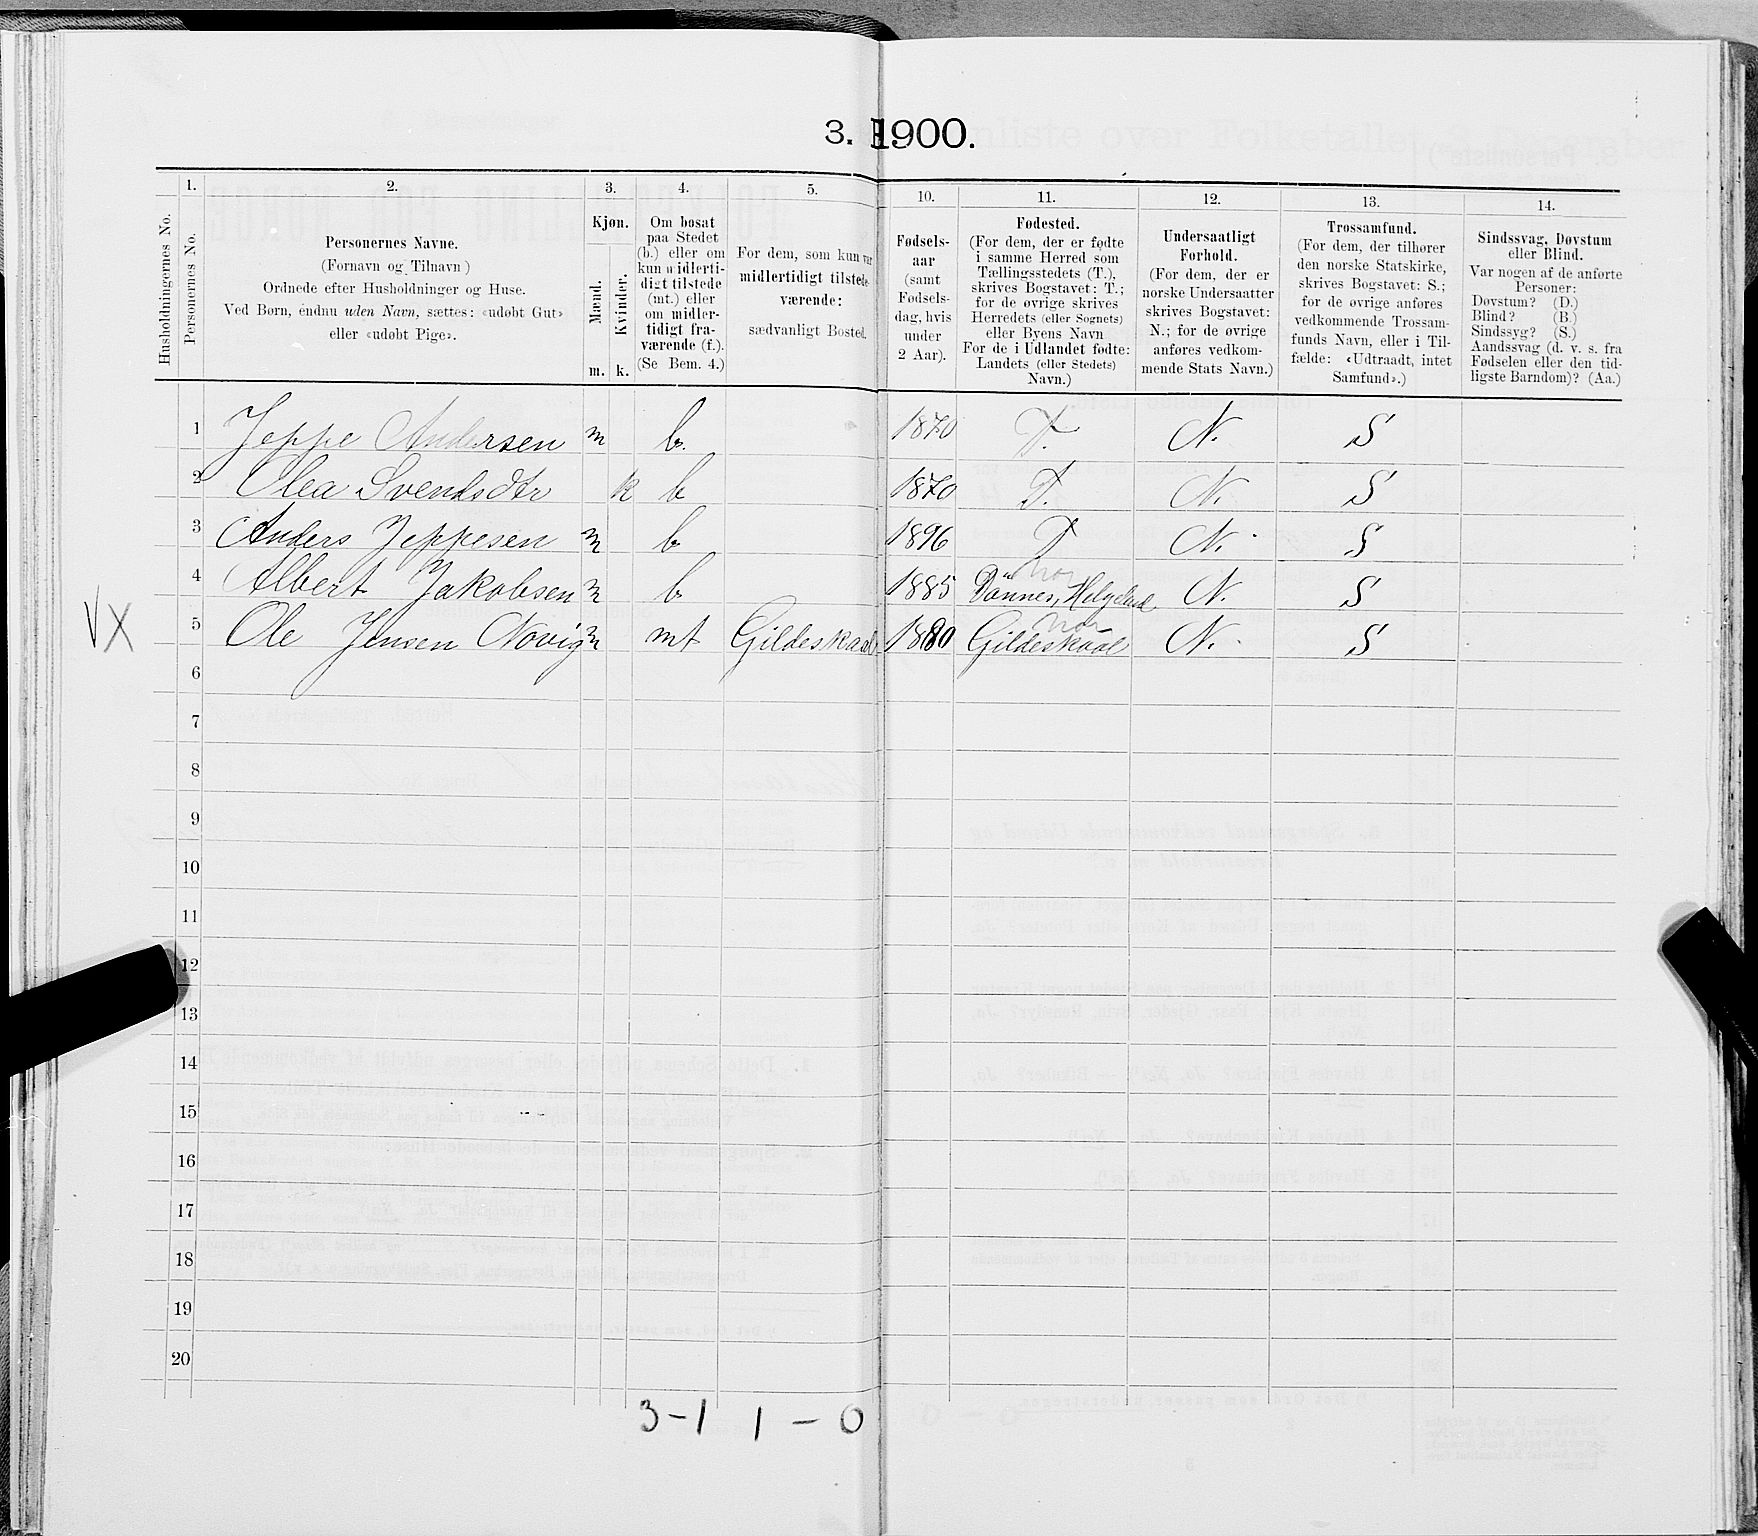 3. 1900.
1. 2. 3. 4. 5. 10. 11. 12. 13. 14.
Husholdningernes No.
Personernes No.
Personernes Navne.
(Fornavn og Tilnavn)
Ordnede efter Husholdninger og Huse.
Ved Børn, endnu uden Navn, sættes: «udøbt Gut»
eller «udøbt Pige».
Kjøn.
Mænd.
Kvinder.
m. k.
Om bosat
paa Stedet
(b.) eller om
kun midlerti-
digt tilstede
(mt.) eller
om midler-
tidigt fra-
værende (f.).
(Se Bem. 4.)
For dem, som kun var
midlertidigt tilstede-
værende:
sædvanligt Bosted.
Fødsels-
aar
(samt
Fødsels-
dag, hvis
under
2 Aar).
Fødested.
(For dem, der er fødte
i samme Herred som
Tællingsstedets (T.),
skrives Bogstavet: T.;
for de øvrige skrives
Herredets (eller Sognets)
eller Byens Navn
For de i Udlandet fødte:
Landets (eller Stedets)
Navn.)
Undersaatligt
Forhold.
(For dem, der er
norske Undersaatter
skrives Bogstavet:
N.; for de øvrige
anføres vedkom-
mende Stats Navn.)
Trossamfund.
(For dem, der tilhører
den norske Statskirke,
skrives Bogstavet: S.;
for de øvrige anføres
vedkommende Trossam-
funds Navn, eller i Til-
fælde: «Udtraadt, intet
Samfund».)
Sindssvag, Døvstum
eller Blind.
Var nogen af de anførte
Personer:
Døvstum? (D.)
Blind? (B.)
Sindssyg? (S.)
Aandssvag (d. v. s. fra
Fødselen eller den tid-
ligste Barndom)? (Aa.)
1 Jeppe Andersen m b. 1870 T. N. S
2 Olea Svendsdtr k b 1870 T. N. S
3 Anders Jeppesen m b 1896 T N. S
nor
4 Albert Jakobsen m b 1885 Dönnes, Helgeland N. S
nor
VX 5 Ole Jensen Novig m mt Gildeskaal 1880 Gildeskaal N. S
6
7
8
9
10
11
12
13
14
15
16
17
18
19
20
3-1 1-0